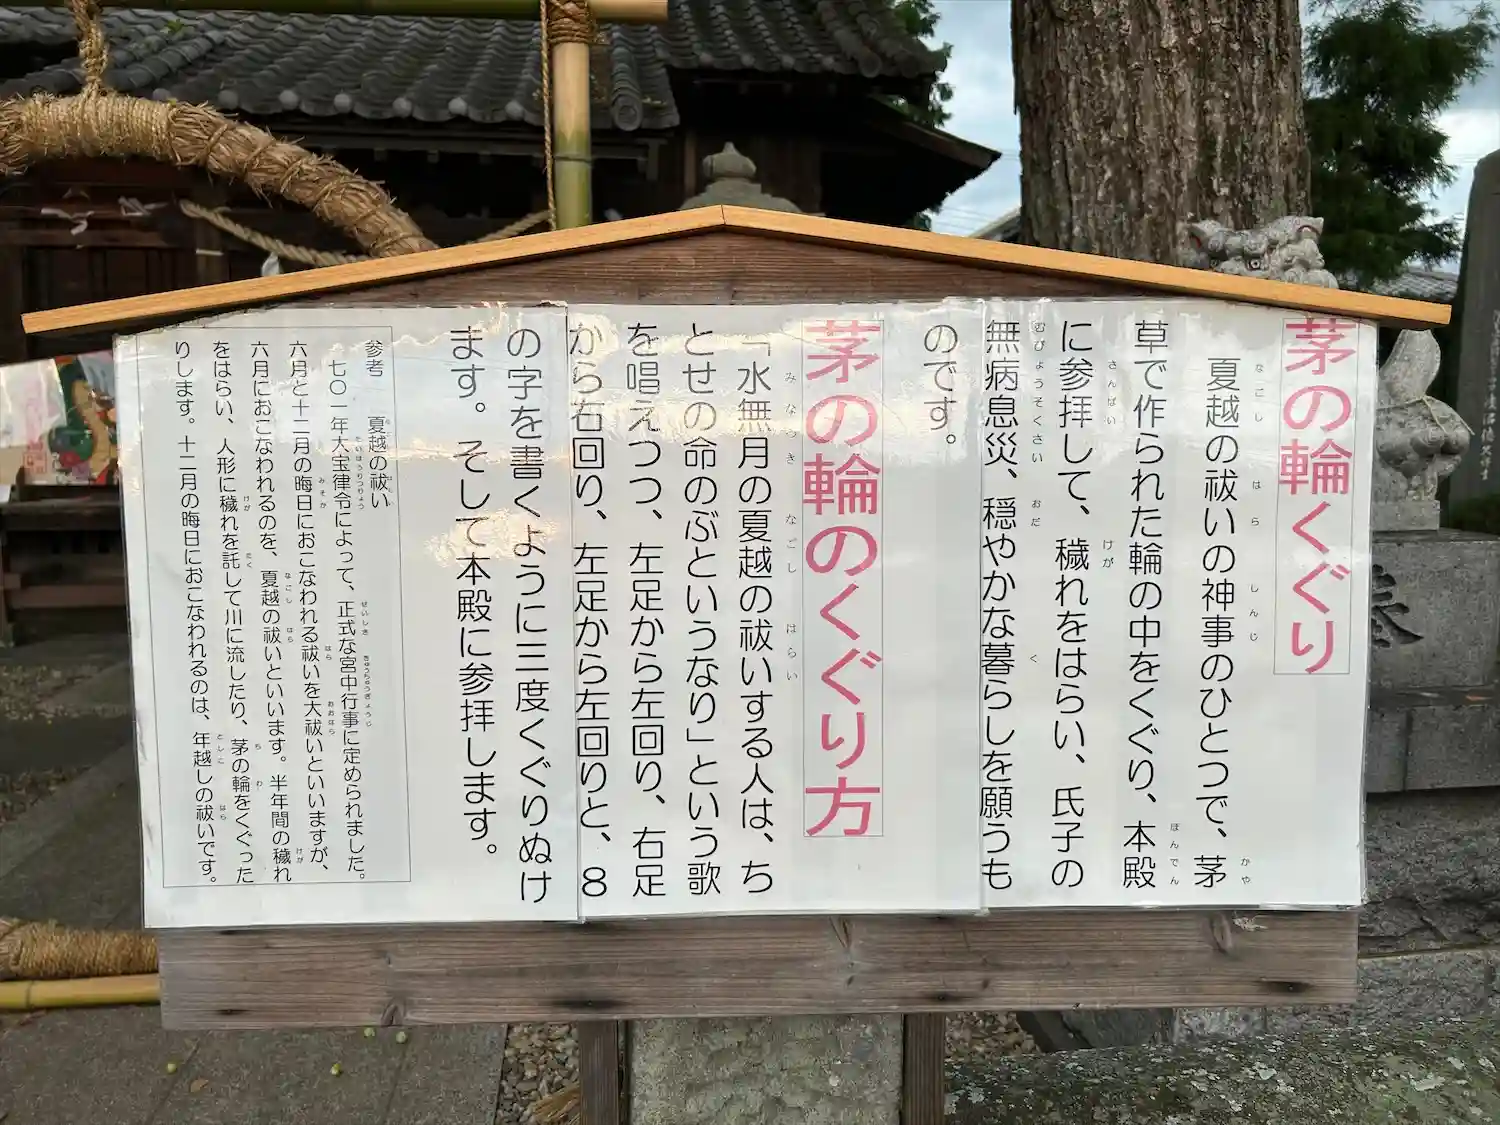 茅の輪くぐり
夏越の祓いの神事のひとつで、茅
草で作られた輪の中をくぐり、本殿
に参拝して、穢れをはらい、氏子の
無病息災、穏やかな暮らしを願うも
のです。
茅の輪のくぐり方
「水無月の夏越の祓いする人は、ち
とせの命のぶというなり」という歌
を唱えつつ、左足から左回り、右足
から右回り、左足から左回りと、8
の字を書くように三度くぐりぬけ
ます。そして本殿に参拝します。
参考　夏越の祓い
七〇一年大宝律令によって、正式な宮中行事に定められました。
六月と十二月の晦日におこなわれる祓いを大祓いといいますが、
六月におこなわれるのを、夏越の祓いといいます。半年間の穢れ
をはらい、人形に穢れを託して川に流したり、茅の輪をくぐった
りします。十二月の晦日におこなわれるのは、年越しの祓いです。